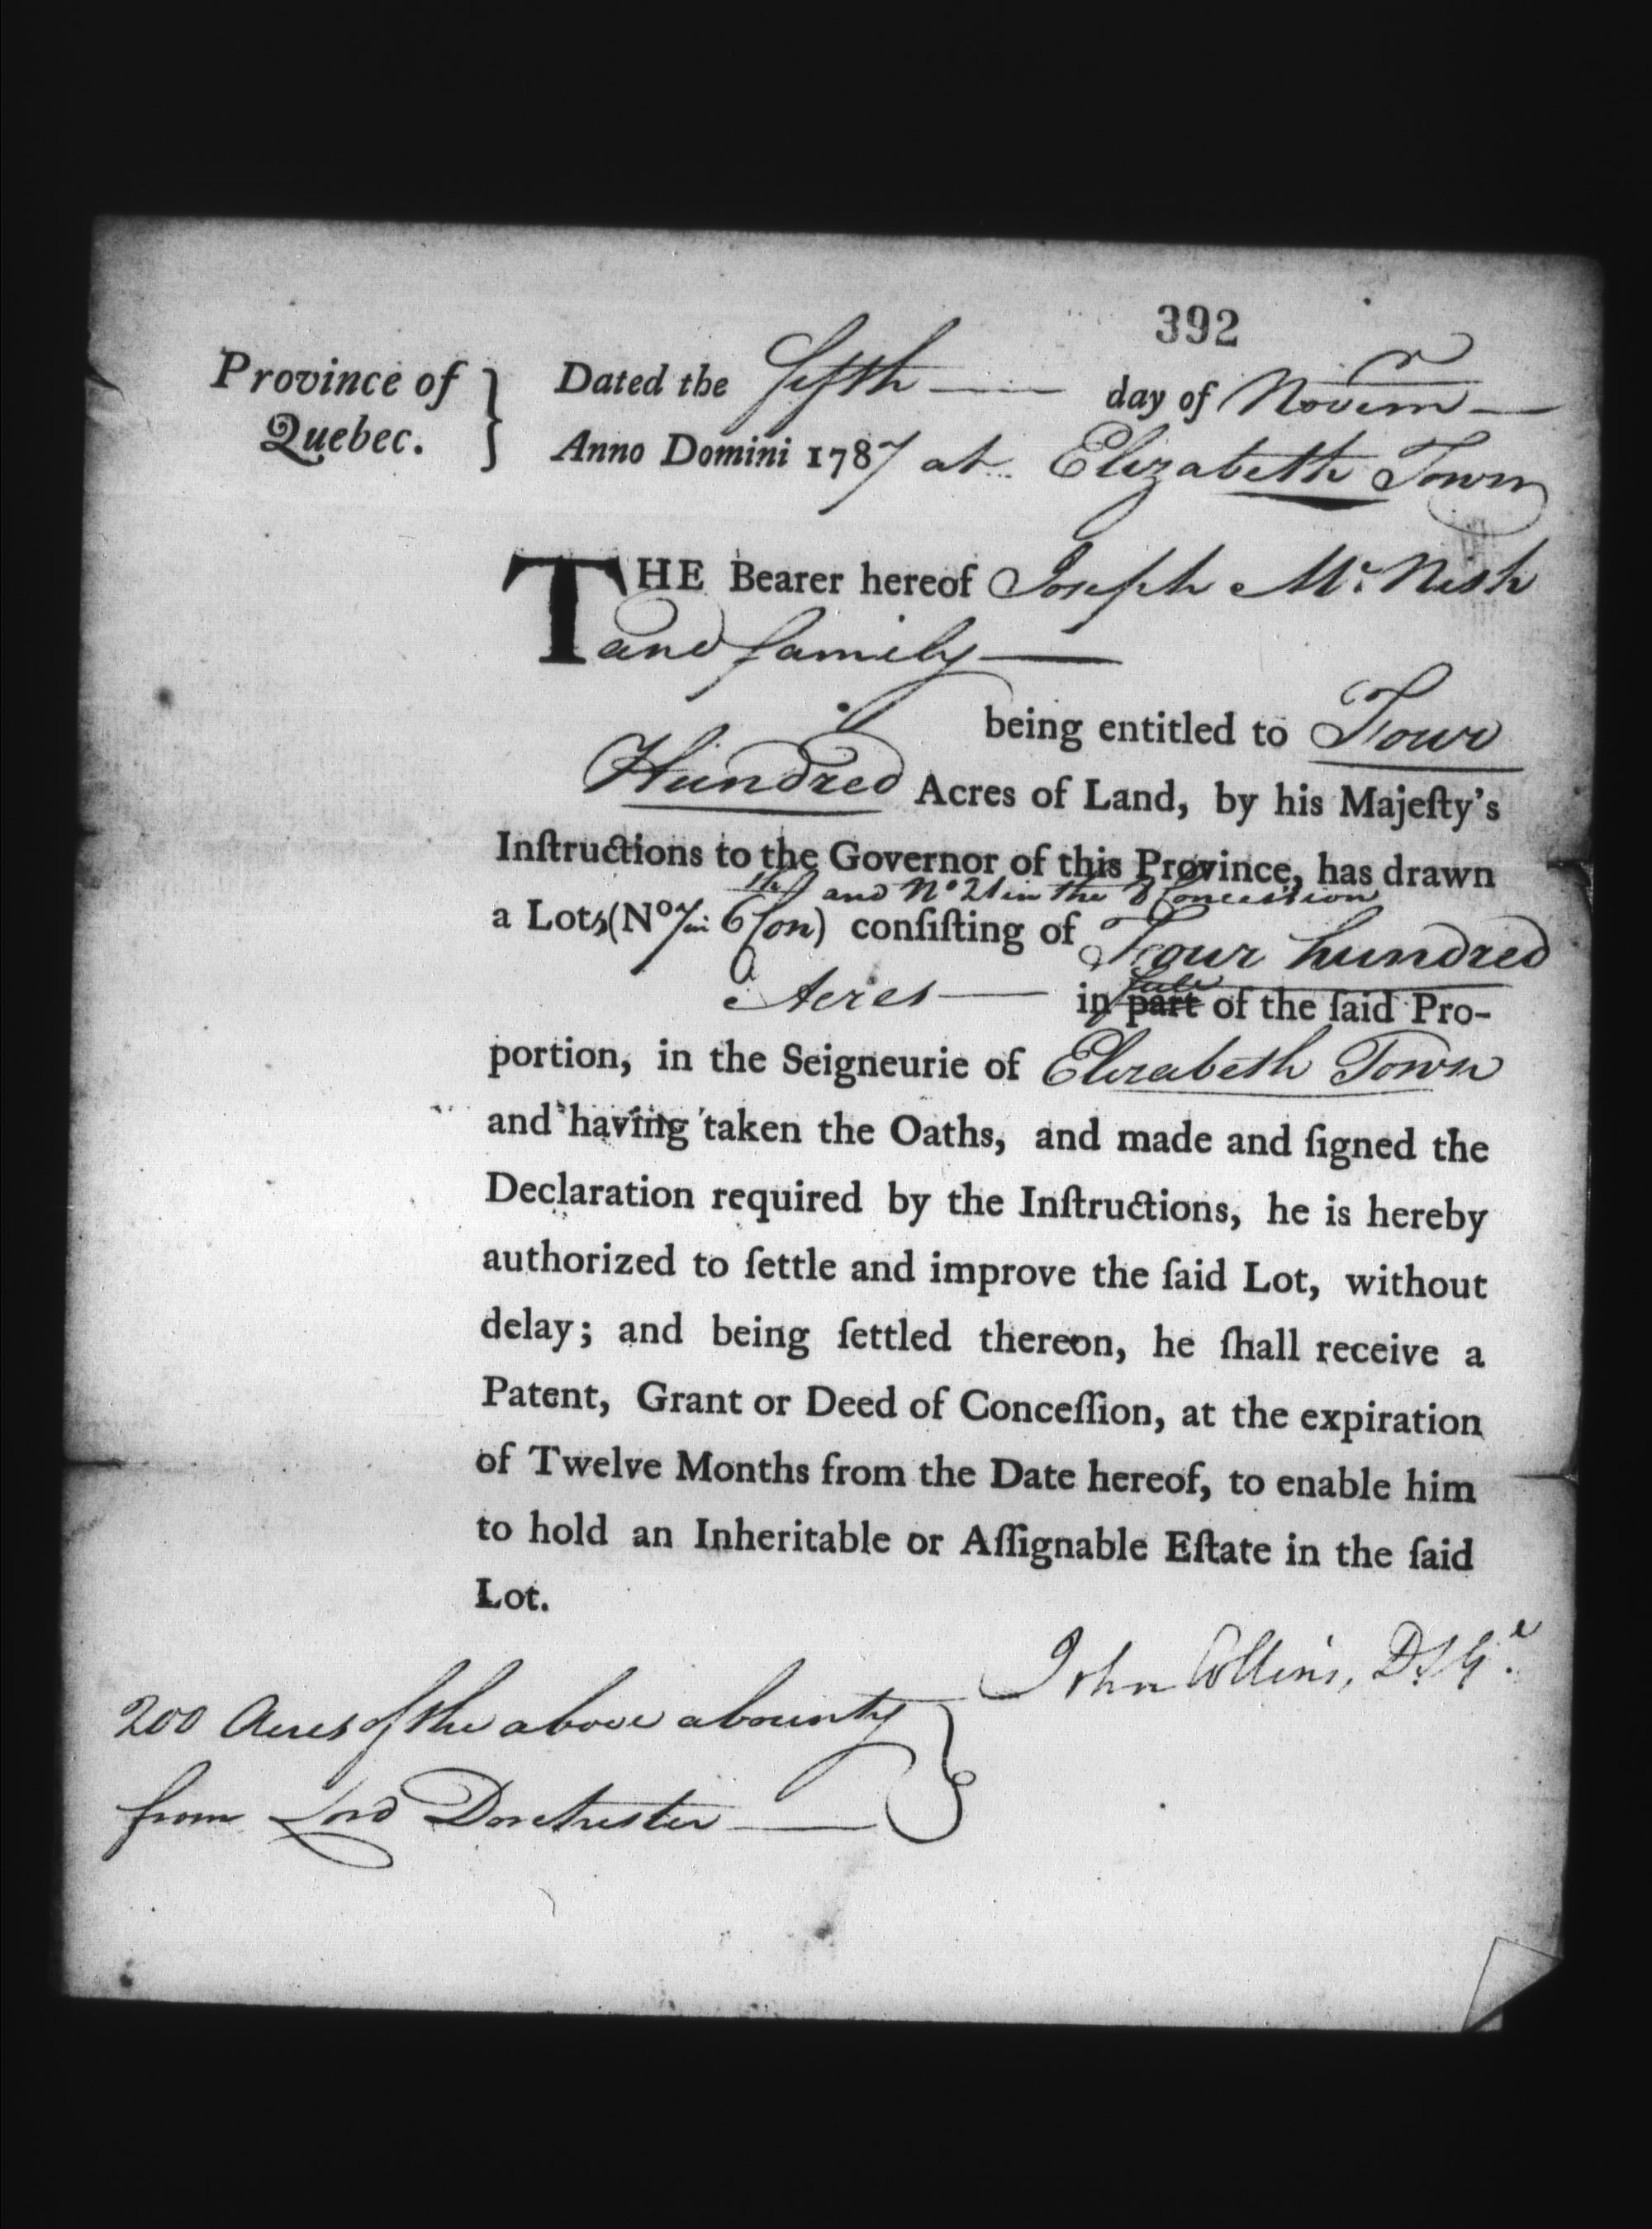 392
Province of Quebec. } Dated the fifth — day of Novemr —
Anno Domini 1787 at Elizabeth Town
THE Bearer hereof Joseph Mc. Nish
and family —
being entitled to Four
Hundred Acres of Land, by his Majeſty's
Inſtructions to the Governor of this Province, has drawn
and No 21 in the 8 Concession
a Lots (No 7 in 6 Con) conſiſting of Four hundred
full
Acres — in part of the ſaid Pro-
portion, in the Seigneurie of Elizabeth Town
and having taken the Oaths, and made and ſigned the
Declaration required by the Inſtructions, he is hereby
authorized to ſettle and improve the ſaid Lot, without
delay; and being ſettled thereon, he ſhall receive a
Patent, Grant or Deed of Conceſſion, at the expiration
of Twelve Months from the Date hereof, to enable him
to hold an Inheritable or Aſſignable Eſtate in the ſaid
Lot.
John Collins, D.S.G.
200 Acres of the above a bounty }
from Lord Dorchester —